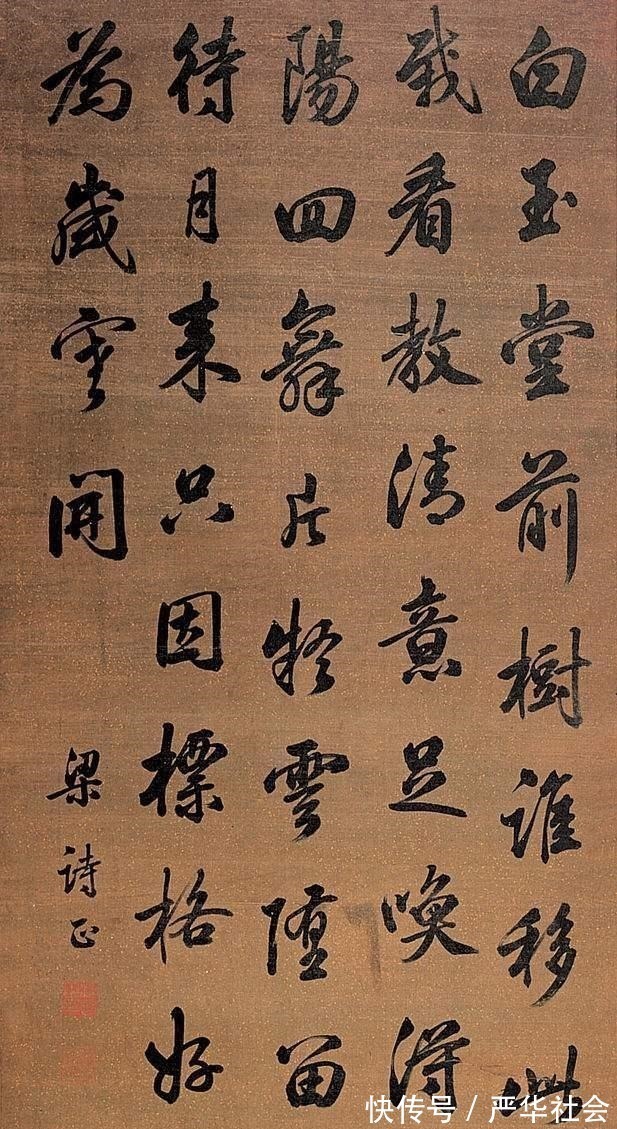 白玉堂前樹誰移此
栽看教清意足喚得
陽回舞片疑雲墮留
待月来只因標格好
為歲寒開
梁詩正
快传号/严华社会